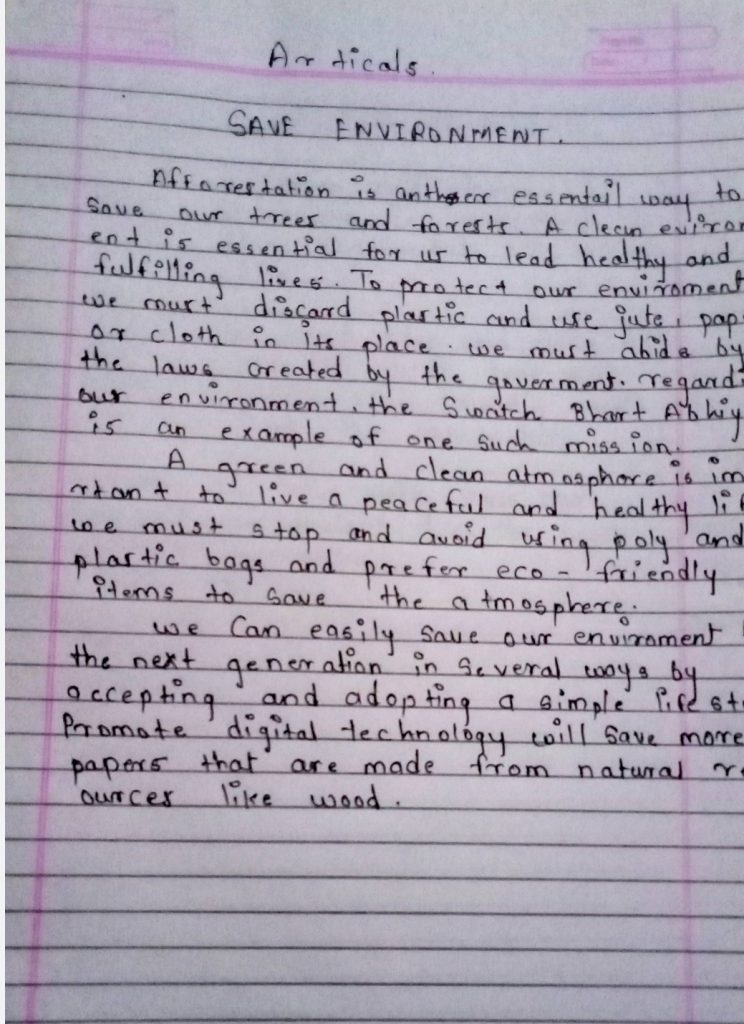 Articals.
SAVE ENVIRONMENT.
Afforestation is anther essentail way to
save our trees and forests. A clean eviron
ent is essential for us to lead healthy and
fulfilling lives. To protect our enviroment
we must discard plastic and use jute, pap
or cloth in its place. we must abide by
the laws created by the goverment. regardi
our environment. the Swatch Bhart Abhiy
is an example of one such mission.
A green and clean atmosphore is im
rtant to live a peaceful and healthy lif
we must stop and avoid using poly and
plastic bags and prefer eco-friendly
items to save the atmosphere.
we can easily save our enviroment
the next generation in several ways by
accepting and adopting a simple life st
Promote digital technology will save more
papers that are made from natural re
ources like wood.